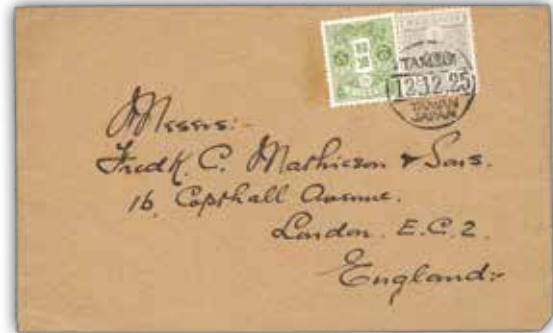 TAMSUI
12.12.25
TAIWAN
JAPAN
Messrs:-
Fredk. C. Mathieson & Sons.
16, Copthall Avenue.
London. E.C.2.
England:-